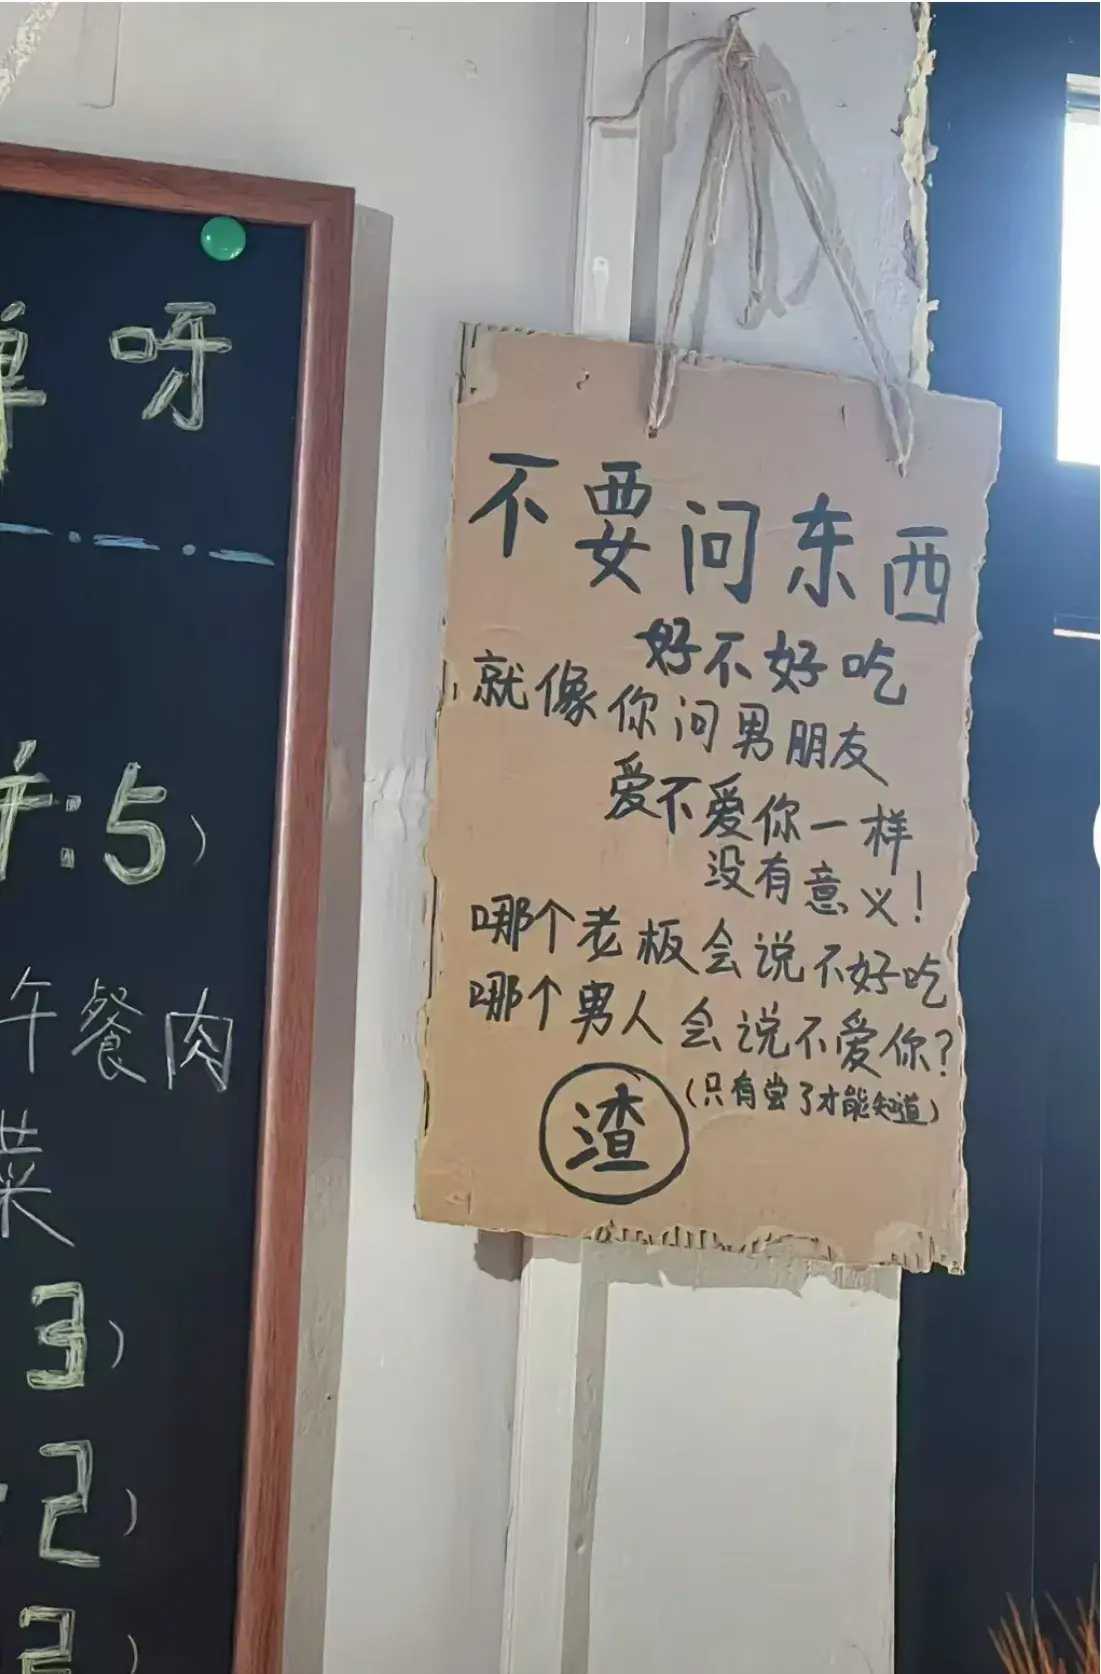 呀
:5)
午餐肉
菜
3)
2)
2)
不要问东西
好不好吃
就像你问男朋友
爱不爱你一样
没有意义!
哪个老板会说不好吃
哪个男人会说不爱你?
(只有尝了才能知道)
渣